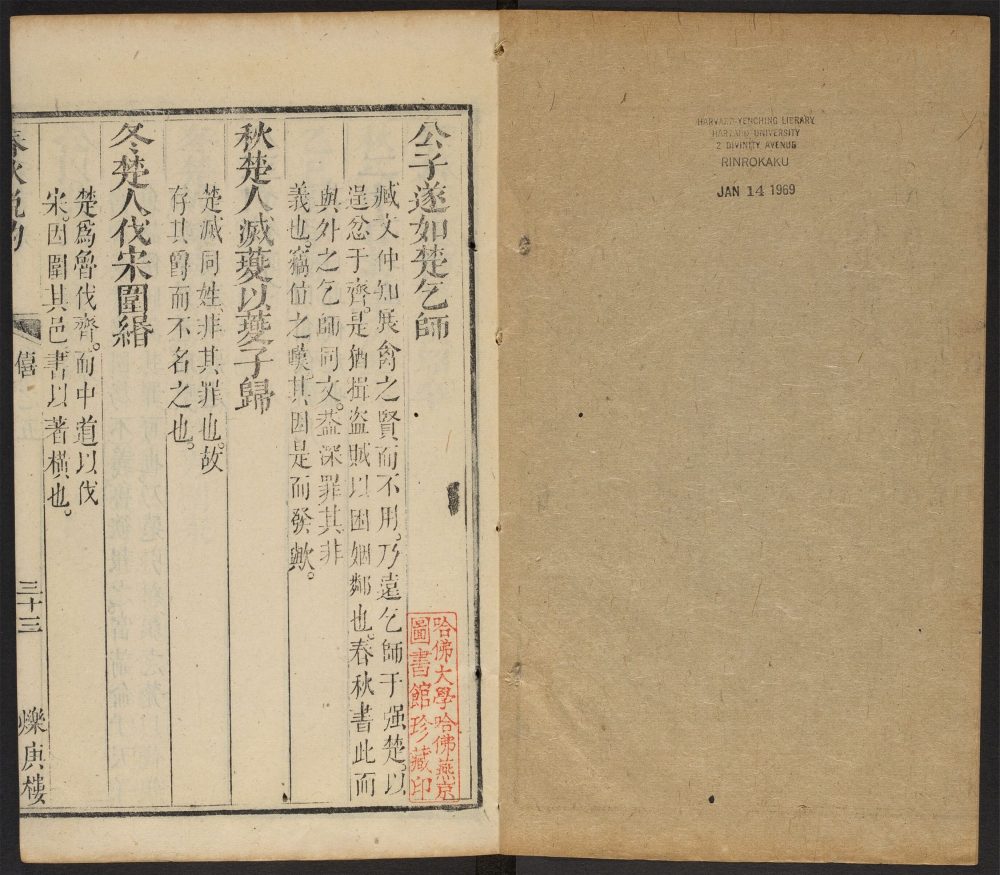 HARVARD-YENCHING LIBRARY
HARVARD UNIVERSITY
2 DIVINITY AVENUE
RINROKAKU
JAN 14 1969
公子遂如楚乞師
臧文仲知展禽之賢而不用。乃遠乞師于强楚。以
逞忿于齊。是猶揖盗賊以困姻鄰也。春秋書此而
與外之乞師同文。葢深罪其非
義也。竊位之嘆。其因是而發歟。
秋楚人滅夔以夔子歸
楚滅同姓。非其罪也。故
存其爵而不名之也。
冬楚人伐宋圍緡
楚爲魯伐齊。而中道以伐
宋。因圍其邑。書以著橫也。
春秋說約
僖
三十三
爍庚樓
哈佛大學哈佛燕京
圖書館珍藏印